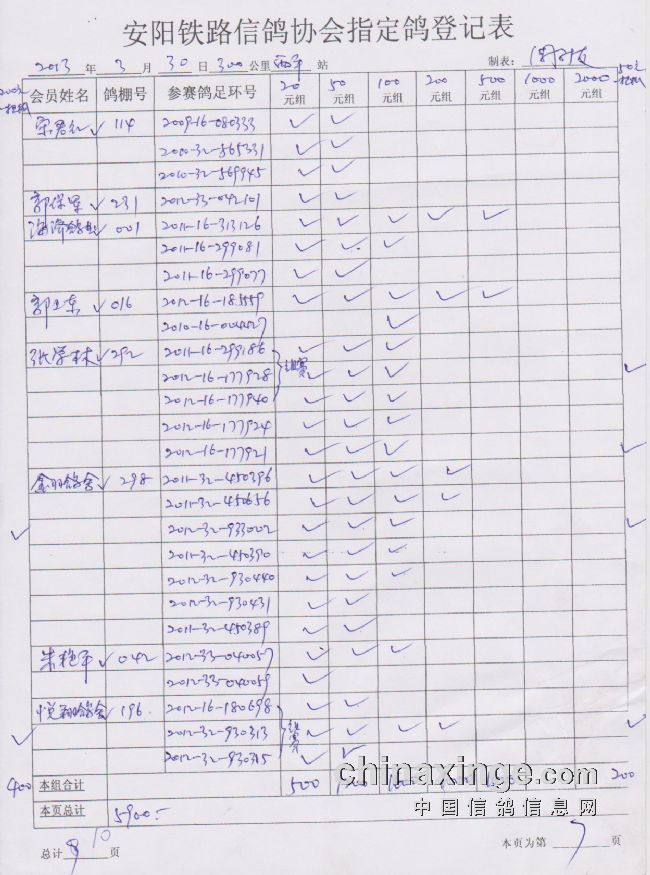 安阳铁路信鸽协会指定鸽登记表
2013 年 3 月 30 日 300 公里 西平 站 制表:
会员姓名 鸽棚号 参赛鸽足环号 20元组 50元组 100元组 200元组 500元组 1000元组 2000元组
✓ 114 2009-16-080333 ✓ ✓
2010-32-565331 ✓ ✓
2010-32-569945 ✓ ✓
郭保军 ✓ 231 2012-33-042101 ✓ ✓
✓ 001 2011-16-313126 ✓ ✓ ✓ ✓ ✓
2011-16-299081 ✓ ✓ ✓
2011-16-299077 ✓ ✓
✓ 016 2012-16-183559 ✓ ✓ ✓ ✓ ✓
✓
张学林 ✓ 292 2011-16-299186 ✓ ✓ ✓
2012-16-177928 ✓ ✓ ✓ ✓
2012-16-177940 ✓ ✓ ✓
2012-16-177924 ✓ ✓ ✓
2012-16-177921 ✓ ✓ ✓ ✓
✓ 298 2011-32-450396 ✓ ✓ ✓ ✓
2011-32-450656 ✓ ✓ ✓ ✓
✓ 2012-32-933002 ✓ ✓ ✓ ✓
2011-32-450390 ✓ ✓ ✓
2012-32-930440 ✓ ✓ ✓
2012-32-930431 ✓ ✓
2011-32-450389 ✓ ✓
朱艳平 ✓ 042 2012-33-040057 ✓ ✓ ✓
2012-33-040059 ✓
196 2012-16-180698 ✓ ✓
✓ 2012-32-930313 ✓ ✓ ✓ ✓ ✓
2012-32-930315 ✓ ✓
400 本组合计 500 200
本页总计 5900.-
总计 10 页 本页为第 7 页
chinaxinge.com
中国信鸽信息网